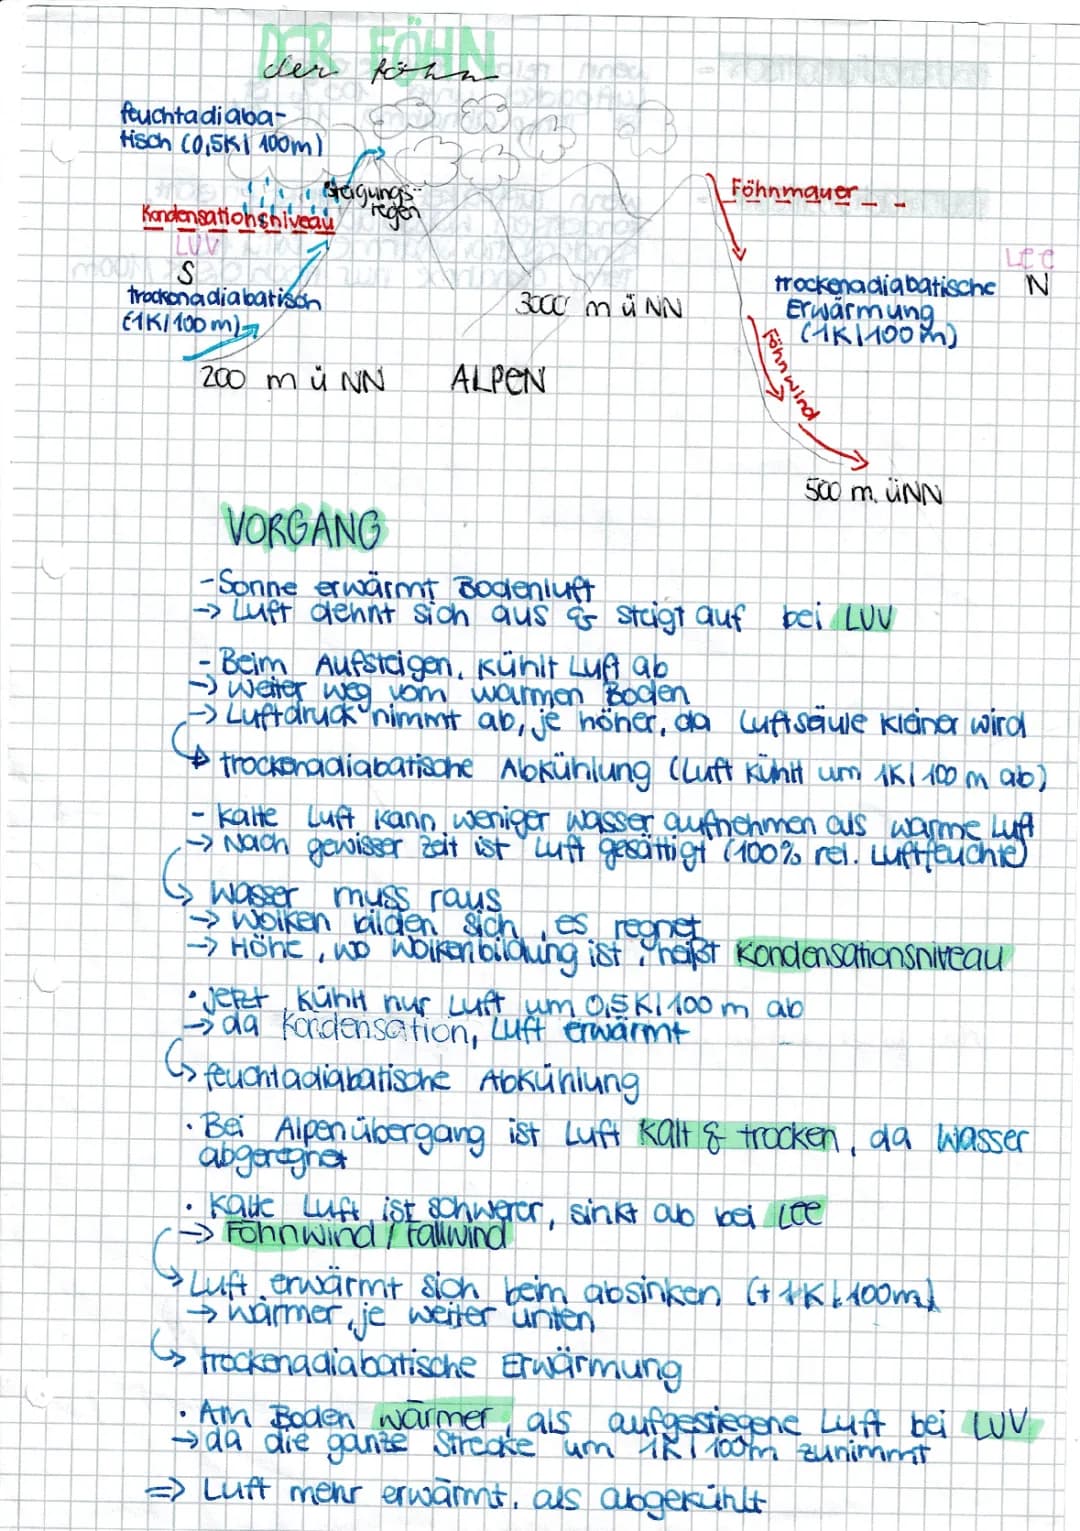 DER FÖHN
der föhn
feuchtadiaba-
tisch (0,5K/100m)
Steigungs-
regen
Kondensationsniveau
LUV
S
trockenadiabatisch
(1K/100m)
200 m ü NN
ALPEN
3000 m ü NN
Föhnmauer
Lee
N
trockenadiabatische
Erwärmung
(1K/100m)
Föhnwind
500 m. üNN
VORGANG
- Sonne erwärmt Bodenluft
→ Luft dehnt sich aus & steigt auf bei LUV
- Beim Aufsteigen, kühlt Luft ab
→ weiter weg vom warmen Boden
→ Luftdruck nimmt ab, je höher, da Luftsäule kleiner wird
↳ trockenadiabatische Abkühlung (Luft kühlt um 1K/100 m ab)
- Kalte Luft kann weniger wasser aufnehmen als warme Luft
→ Nach gewisser Zeit ist Luft gesättigt (100% rel. Luftfeuchte)
↳ wasser muss raus
→ Wolken bilden sich, es regnet
→ Höhe, wo Wolkenbildung ist, heißt Kondensationsniveau
· Jetzt kühlt nur Luft um 0,5K/100 m ab
→ da Kondensation, Luft erwärmt
↳ feuchtadiabatische Abkühlung
· Bei Alpenübergang ist Luft kalt & trocken, da Wasser
abgeregnet
· Kalte Luft ist schwerer, sinkt ab bei Lee
→ Föhnwind / Fallwind
↳ Luft erwärmt sich beim absinken (+ 1K/100m)
→ wärmer, je weiter unten
↳ trockenadiabatische Erwärmung
· Am Boden wärmer, als aufgestiegene Luft bei LUV
→ da die ganze Strecke um 1K/100m zunimmt
⇒ Luft mehr erwärmt, als abgekühlt